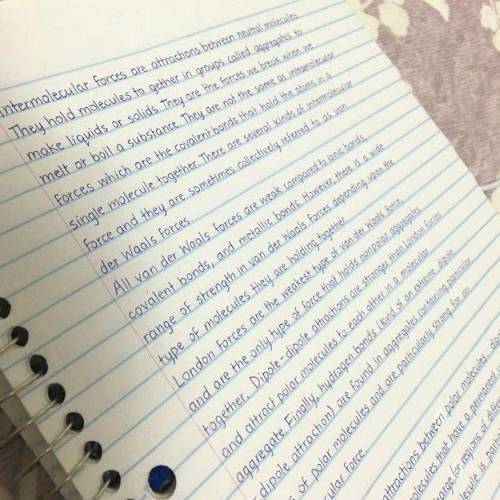 intermolecular forces are attractions between neutral molecules
They hold molecules to gether in groups called aggregates to
make liquids or solids. They are the forces we break when we
melt or boil a substance They are not the same as intramolecular
forces which are the covalent bonds that hold the atoms in a
single molecule together. There are several kinds of intermolecular
force and they are sometimes collectively referred to as van
der Waals Forces
All van der Waals forces are weak compared to ionic bonds,
covalent bonds, and metallic bonds. However, there is a wide
range of strength in van der Waals forces depending upon the
type of molecules they are holding together
London Forces are the weakest type of van der Waals force
and are the only type of force that holds nonpolar aggregates
together. Dipole-dipole attractions are stronger than London Forces
and attract polar molecules to each other in a molecular
aggregate. Finally, hydrogen bonds (kind of an extreme dipole
dipole attraction) are found in aggregates containing particular
s of polar molecules and are particularly strong for an
ular force.
attractions between polar molecules
olecules that have a permanent
for regions of